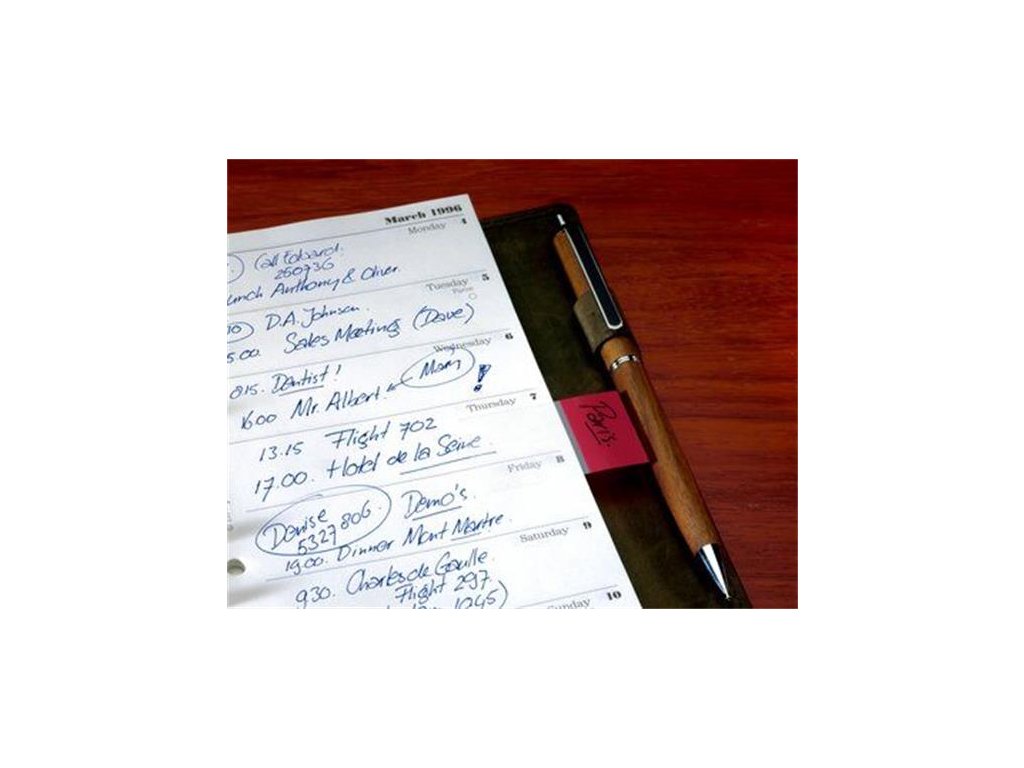 March 1996
Monday 4
Call Edward.
260736
unch Anthony & Oliver
Tuesday 5
10) D.A. Johnson.
5.00. Sales Meeting (Dave)
Wednesday 6
815. Dentist!
1600 Mr. Albert Mary !
Thursday 7
13.15 Flight 702
17.00. Hotel de la Seine.
Paris.
Friday 8
Denise Demo's.
5327806.
1900. Dinner Mont Martre.
Saturday 9
930. Charles de Gaulle.
Flight 297.
1045)
Sunday 10